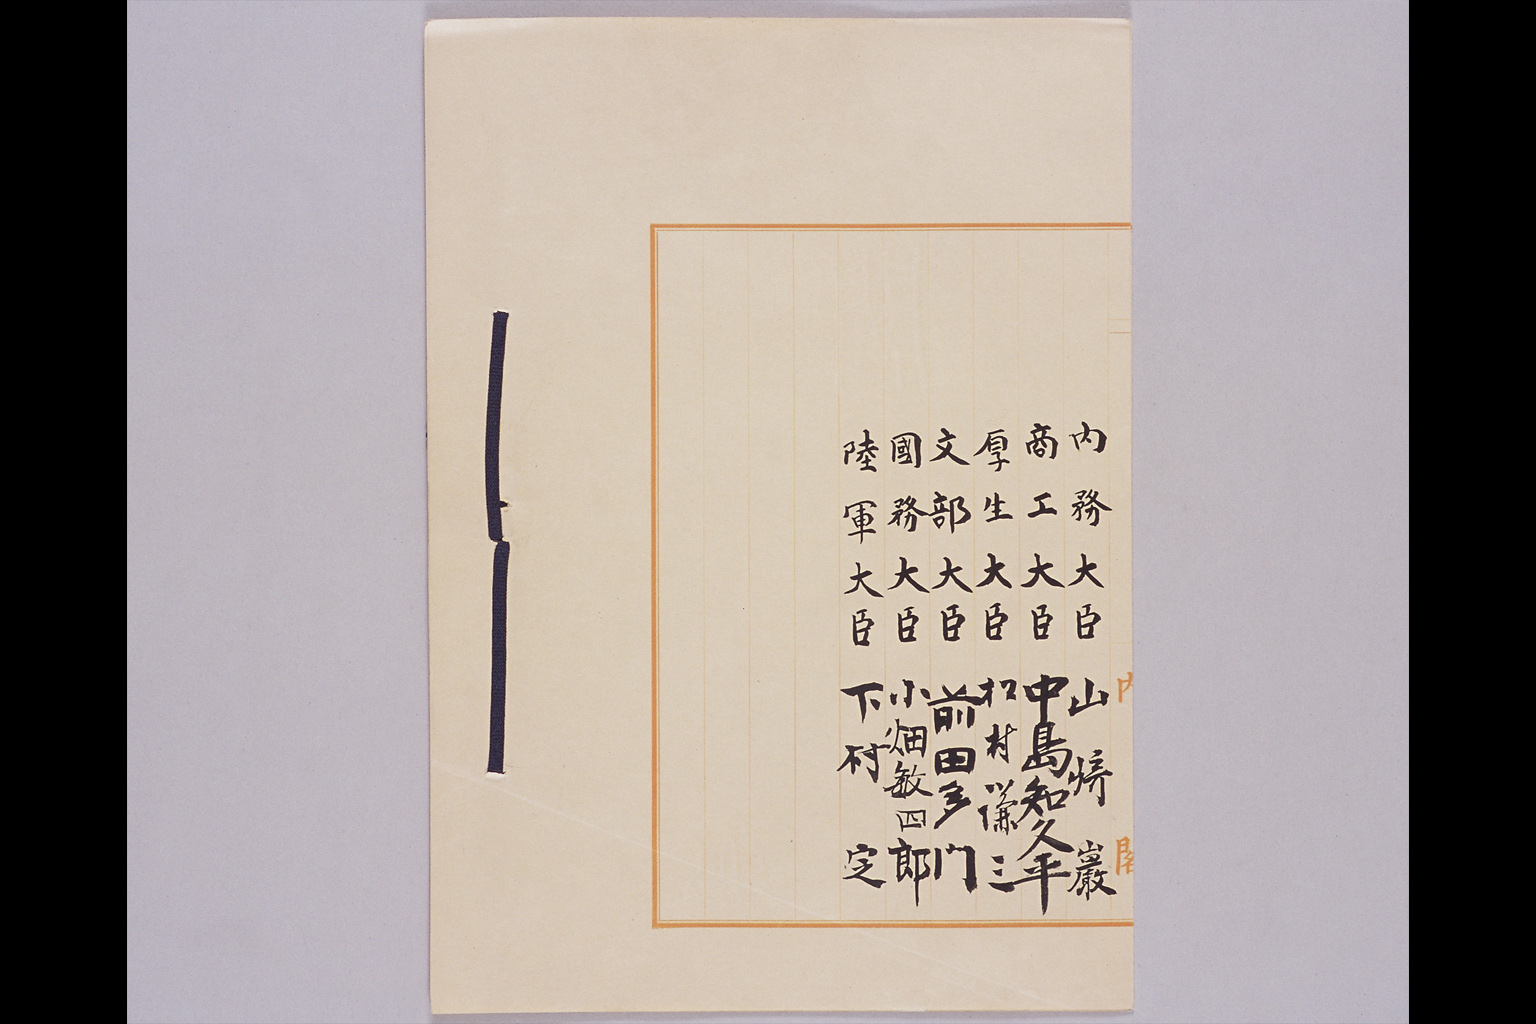 内
内務大臣 山崎巖
商工大臣 中島知久平
厚生大臣 松村謙三
文部大臣 前田多門
國務大臣 小畑敏四郎
陸軍大臣 下村定